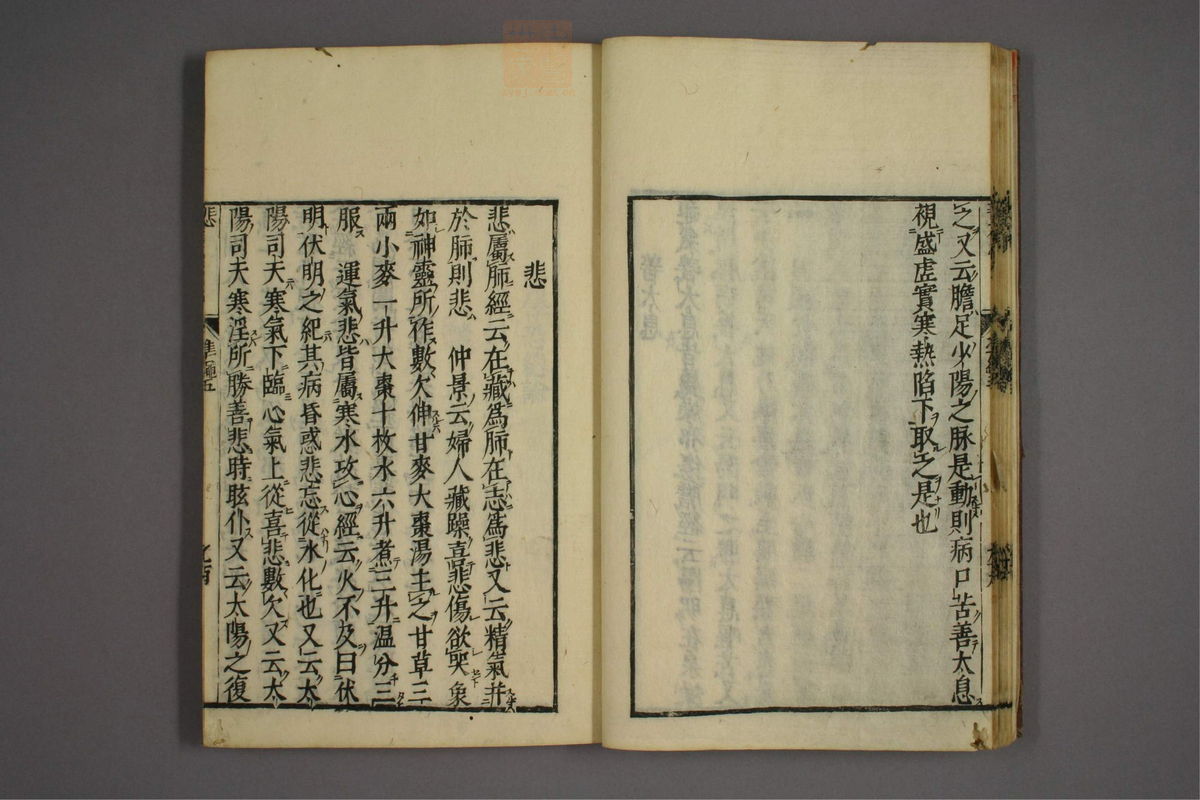 之又云膽足少陽之脉是動則病口苦善太息
視盛虛實寒熱陷下取之是也
悲
悲屬肺經云在藏爲肺在志爲悲又云精氣并
於肺則悲 仲景云婦人藏躁喜悲傷欲哭象
如神靈所作數欠伸甘麥大棗湯主之甘草三
兩小麥一升大棗十枚水六升煮三升温分三
服 運氣悲皆屬寒水攻心經云火不及曰伏
明伏明之紀其病昏惑悲忘從水化也又云太
陽司天寒氣下臨心氣上從喜悲數欠又云太
陽司天寒淫所勝善悲時眩仆又云太陽之復
悲
準繩五